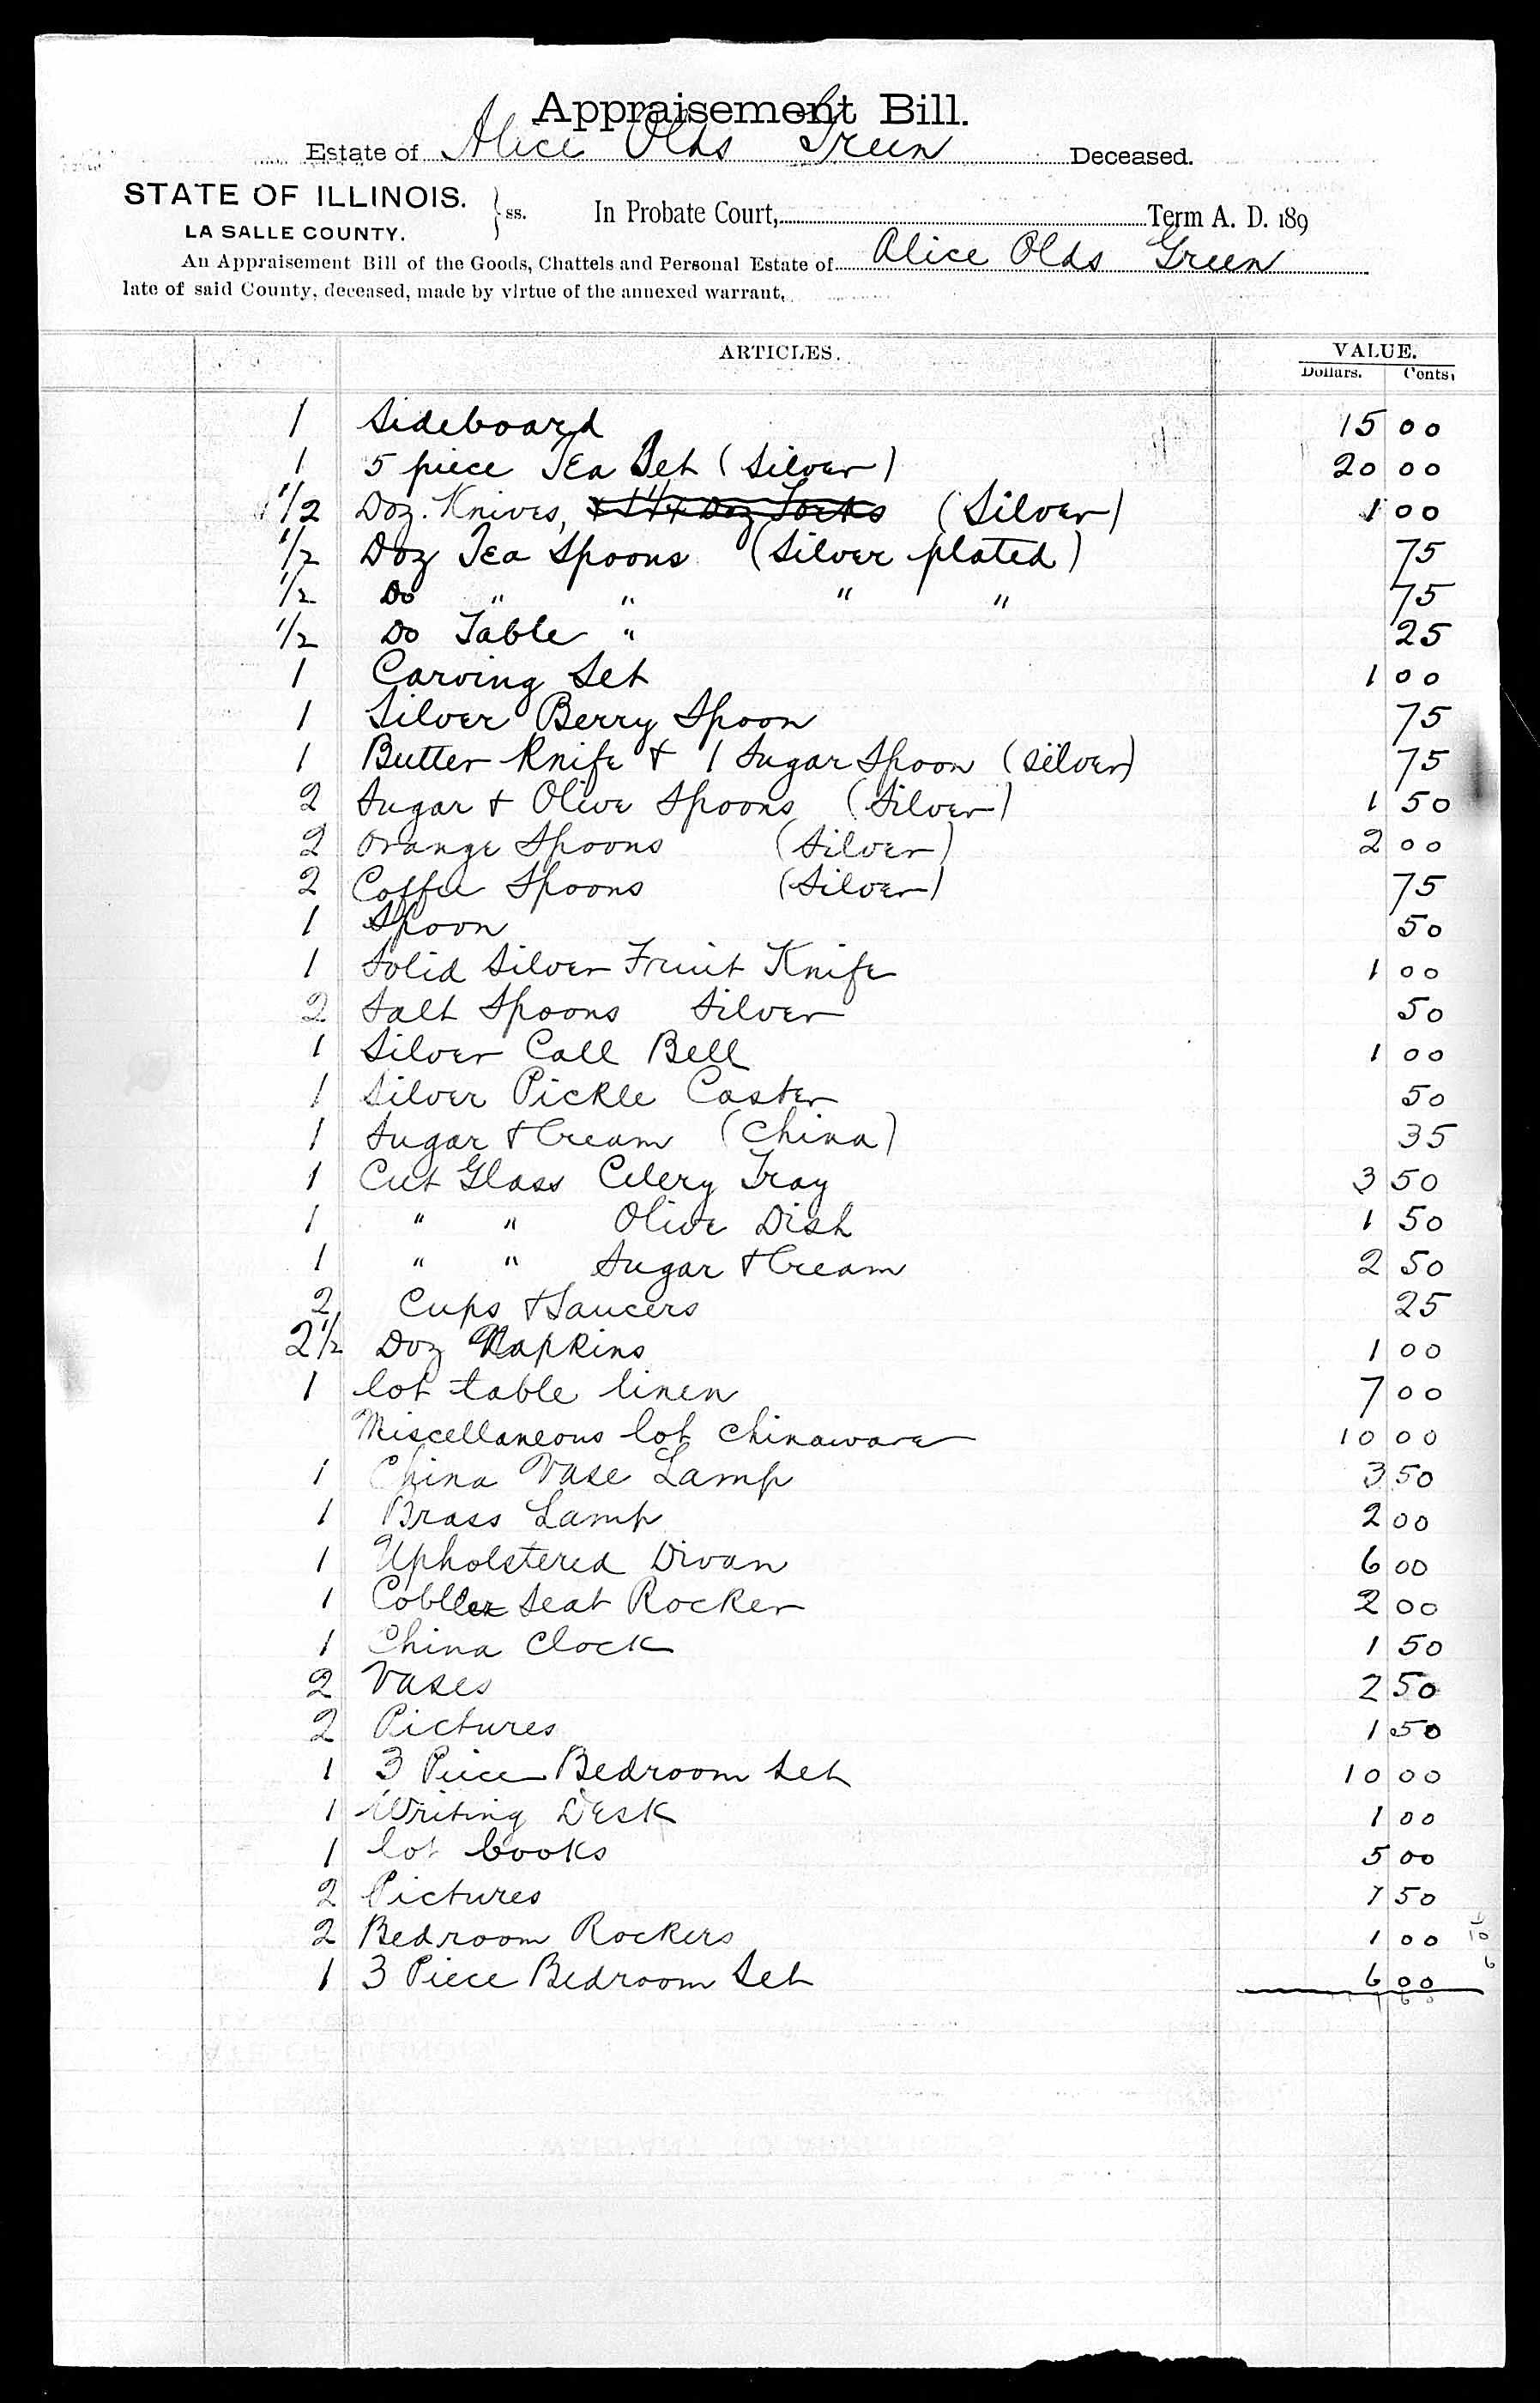 Appraisement Bill.
Estate of Alice Olds Green Deceased.
STATE OF ILLINOIS. } ss. In Probate Court, Term A. D. 189
LA SALLE COUNTY.
An Appraisement Bill of the Goods, Chattels and Personal Estate of Alice Olds Green
late of said County, deceased, made by virtue of the annexed warrant,
ARTICLES. VALUE.
Dollars. Cents.
1 Sideboard 15 00
1 5 piece Tea Set (Silver) 20 00
1/2 Doz. Knives, (Silver) 1 00
1/2 Doz Tea Spoons (Silver plated) 75
1/2 Do " " " " 75
1/2 Do Table " 25
1 Carving Set 1 00
1 Silver Berry Spoon 75
1 Butter Knife & 1 Sugar Spoon (Silver) 75
2 Sugar & Olive Spoons (Silver) 1 50
2 Orange Spoons (Silver) 2 00
2 Coffee Spoons (Silver) 75
1 Spoon 50
1 Solid Silver Fruit Knife 1 00
2 Salt Spoons Silver 50
1 Silver Call Bell 1 00
1 Silver Pickle Caster 50
1 Sugar & Cream (China) 35
1 Cut Glass Celery Tray 3 50
1 " " Olive Dish 1 50
1 " " Sugar & Cream 2 50
2 Cups & Saucers 25
2 1/2 Doz Napkins 1 00
1 lot table linen 7 00
Miscellaneous lot chinaware 10 00
1 China Vase Lamp 3 50
1 Brass Lamp 2 00
1 Upholstered Divan 6 00
1 Cobbler Seat Rocker 2 00
1 China Clock 1 50
2 Vases 2 50
2 Pictures 1 50
1 3 Piece Bedroom Set 10 00
1 Writing Desk 1 00
1 lot books 5 00
2 Pictures 1 50
2 Bedroom Rockers 1 00
1 3 Piece Bedroom Set 6 00